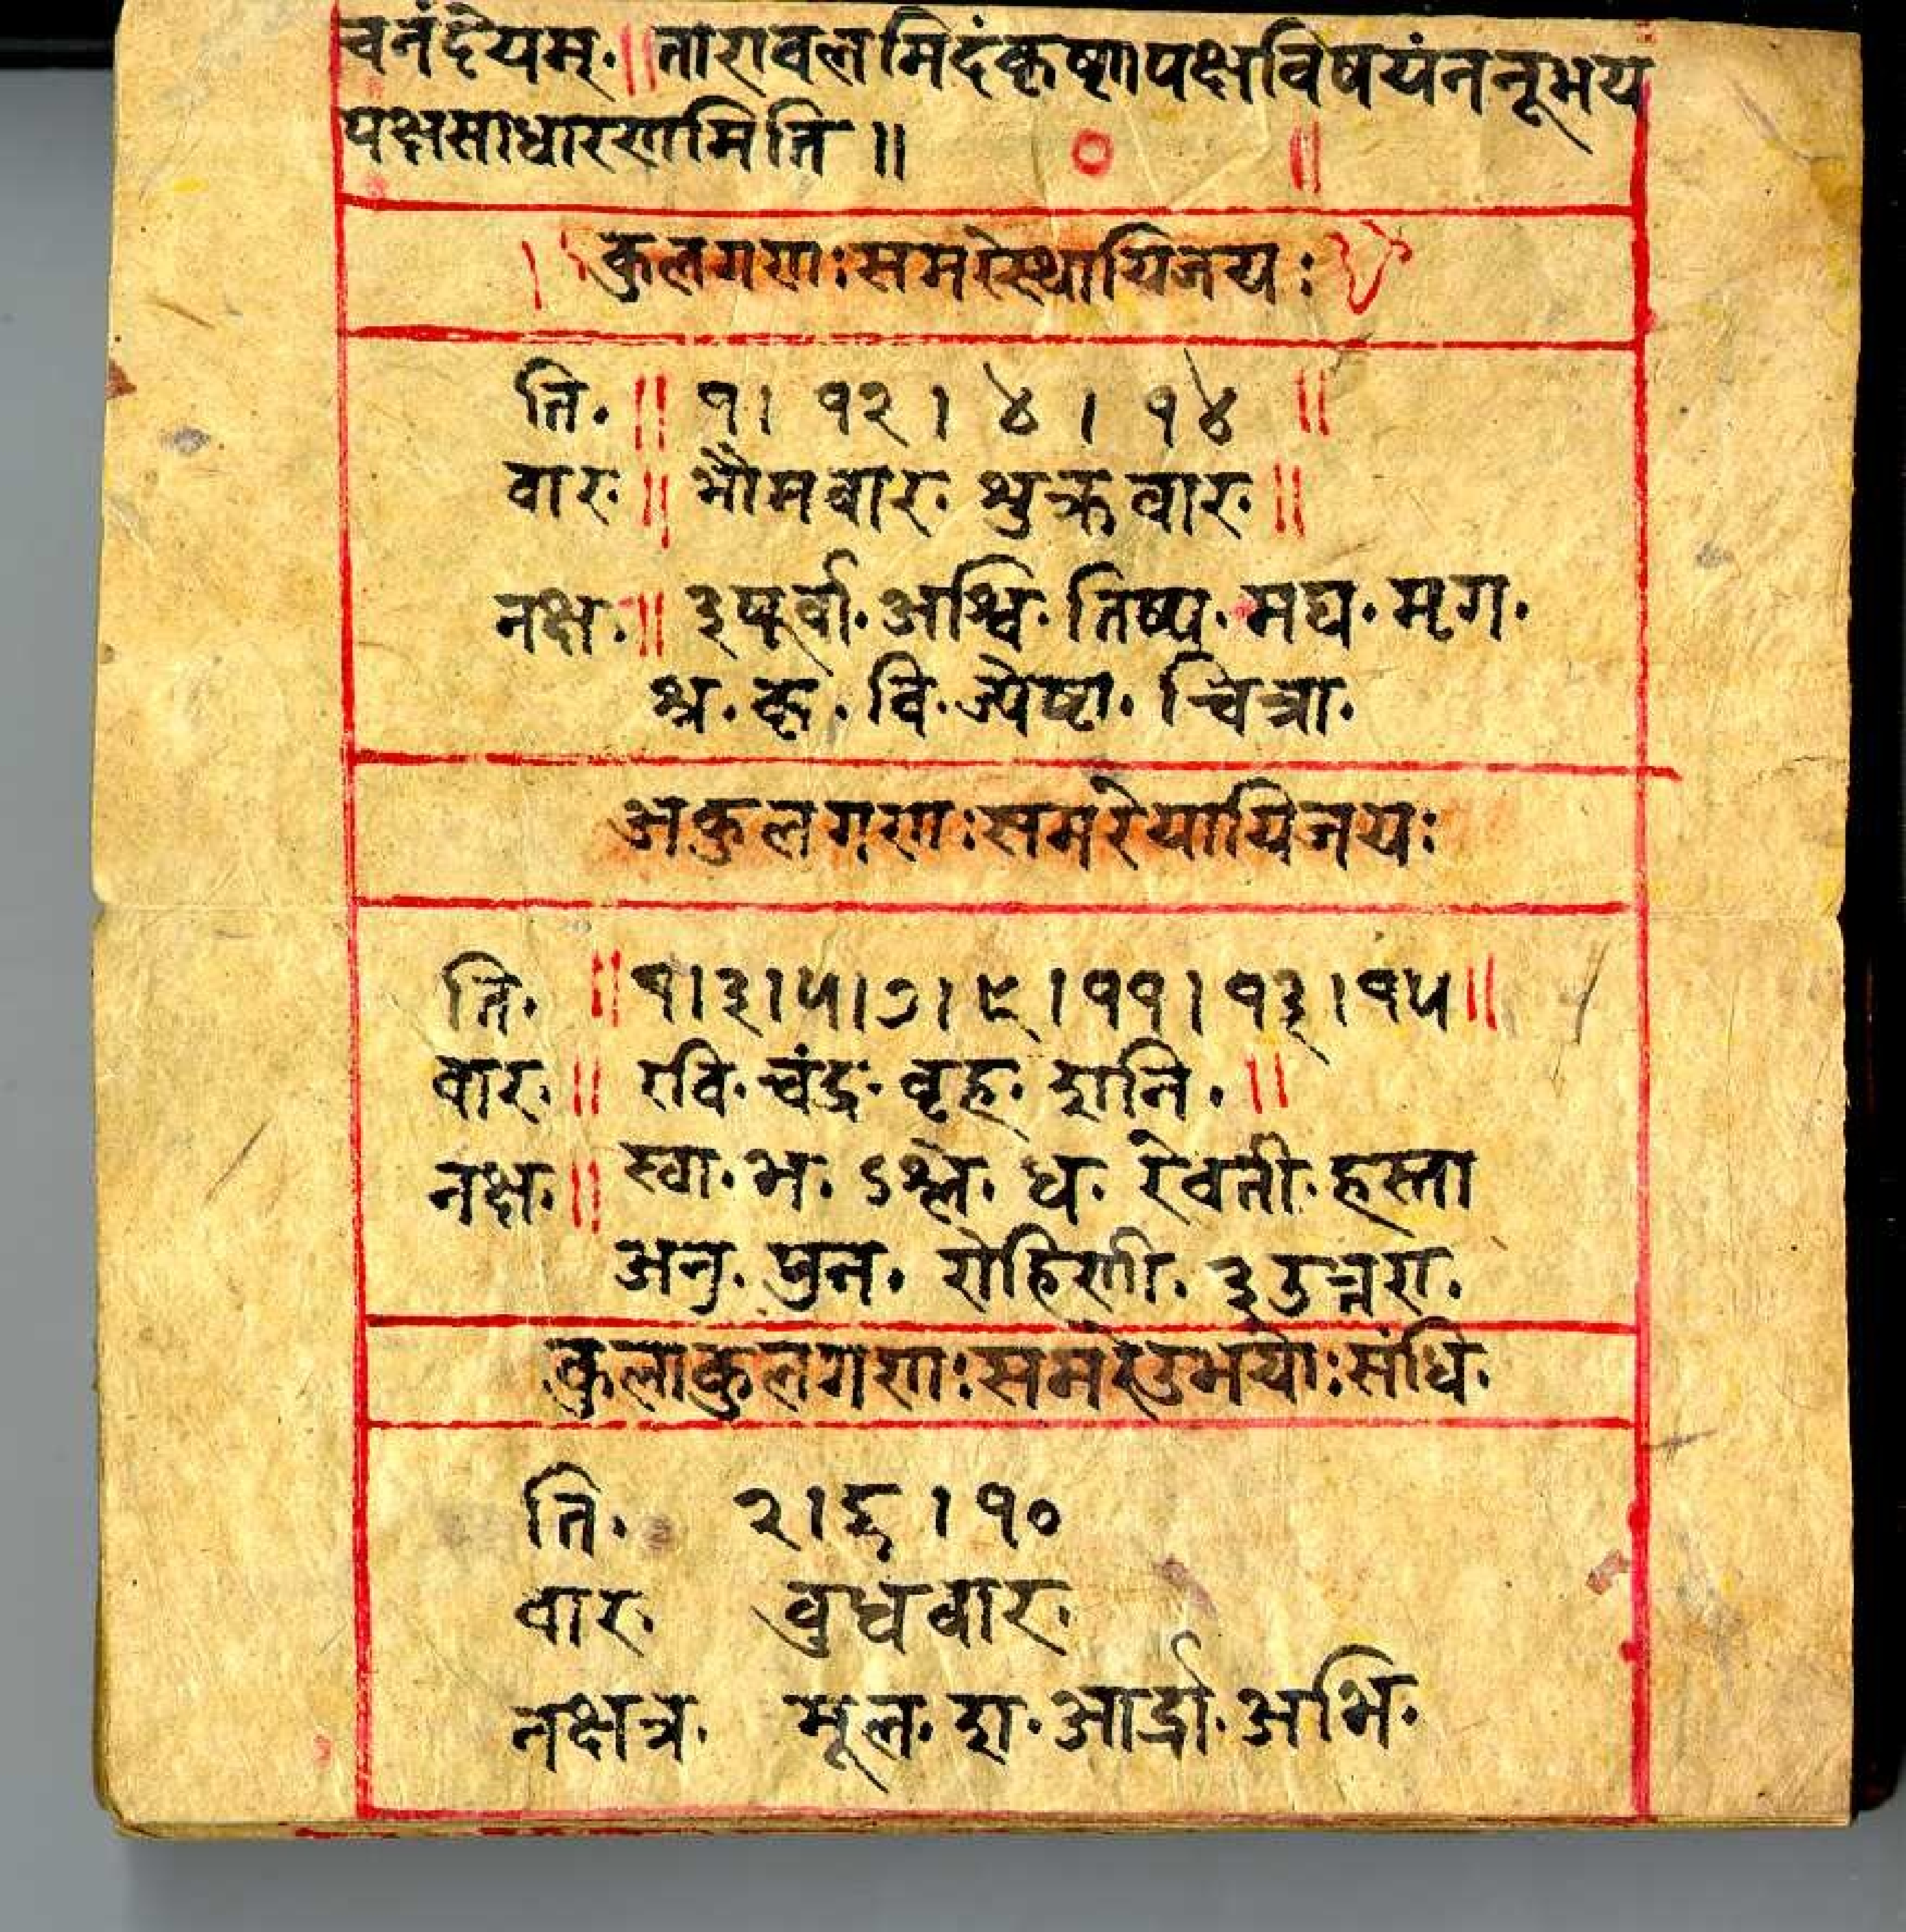 चनंदेयम्॰॥ताराबलमिदंकृष्णपक्षविषयंनतूभय
पक्षसाधारणमिति॥ ० ॥
कुलगणःसमरेस्थायिजयः
ति॰॥ १। १२। ४। १४ ॥
वार॰॥ भौमवार॰ शुक्रवार॰॥
नक्ष॰॥ ३पूर्वा॰अश्वि॰तिष्य॰मघ॰मृग॰
श्र॰कृ॰वि॰ज्येष्टा॰चित्रा॰
अकुलगणःसमरेयायिजयः
ति॰ ॥१।३।५।७।९।११।१३।१५॥
वार॰॥ रवि॰चंद्र॰वृह॰शनि॰॥
नक्ष॰॥ स्वा॰भ॰ऽश्ले॰ध॰रेवती॰हस्ता
अनु॰पुन॰रोहिणी॰३उत्तरा॰
कुलाकुलगणःसमरेउभयोःसंधि॰
ति॰ २।६।१०
वार॰ वुधवार॰
नक्षत्र॰ मूल॰श॰आर्द्रा॰अभि॰